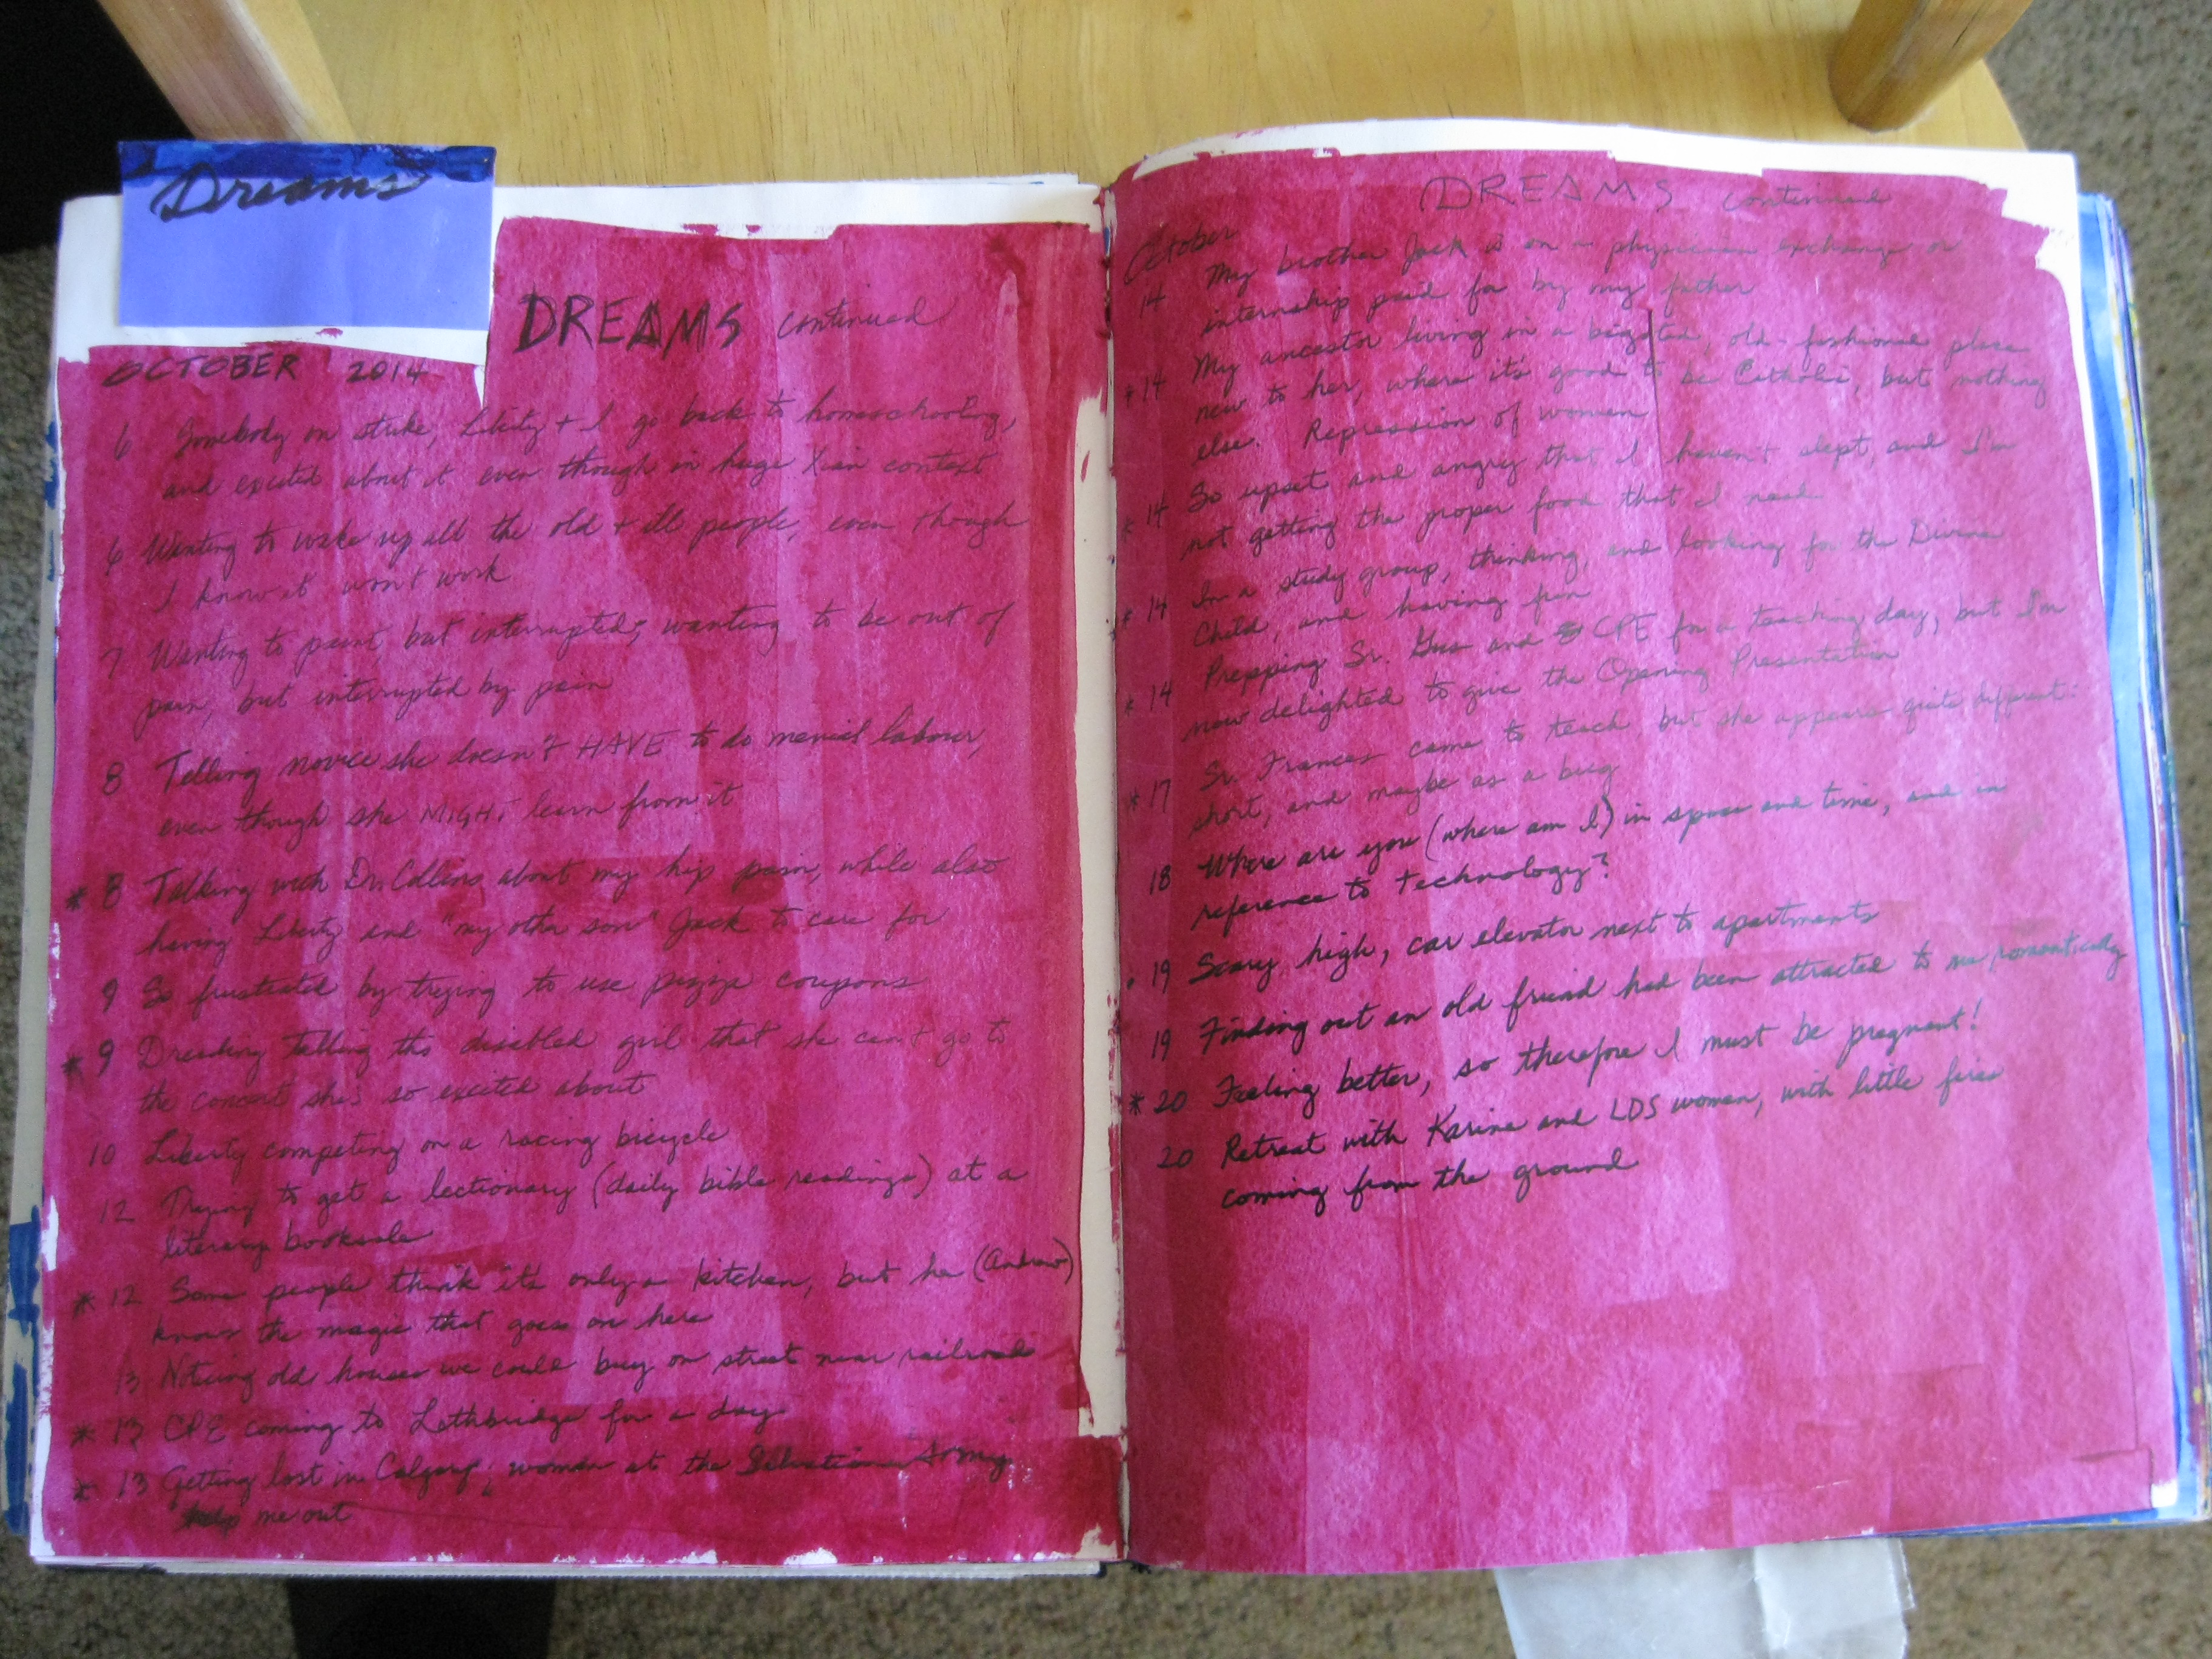 Dreams
DREAMS continued
OCTOBER 2014
6 Somebody on strike, Liberty + I go back to homeschooling,
and excited about it even though in huge Xian context
6 Wanting to wake up all the old + ill people, even though
I know it won't work
7 Wanting to paint but interrupted; wanting to be out of
pain, but interrupted by pain
8 Telling novice she doesn't HAVE to do menial labour,
even though she MIGHT learn from it
* 8 Talking with Dr. Collins about my hip pain, while also
having Liberty and "my other son" Jack to care for
9 So frustrated by trying to use pizza coupons
* 9 Dreading telling the disabled girl that she can't go to
the concert she's so excited about
10 Liberty competing on a racing bicycle
12 Trying to get a lectionary (daily bible readings) at a
literary booksale
* 12 Some people think it's only a kitchen, but he (Andrew)
knows the magic that goes on here
13 Noticing old houses we could buy on street near railroad
* 13 CPE coming to Lethbridge for a day
* 13 Getting lost in Calgary; woman at the Salvation Army
help me out
DREAMS continued
October
14 My brother Jack is on a physician exchange or
internship paid for by my father
* 14 My ancestor living in a bigoted, old-fashioned place
new to her, where it's good to be Catholic, but nothing
else. Repression of women
* 14 So upset and angry that I haven't slept, and I'm
not getting the proper food that I need
* 14 In a study group, thinking, and looking for the Divine
Child, and having fun
* 14 Prepping Sr. Gus and CPE for a teaching day, but I'm
now delighted to give the Opening Presentation
* 17 Sr. Frances came to teach but she appears quite different:
short, and maybe as a bug
18 Where are you (where am I) in space and time, and in
reference to technology?
19 Scary high, car elevator next to apartments
19 Finding out an old friend had been attracted to me romantically
* 20 Feeling better, so therefore I must be pregnant!
20 Retreat with Karine and LDS women, with little fires
coming from the ground